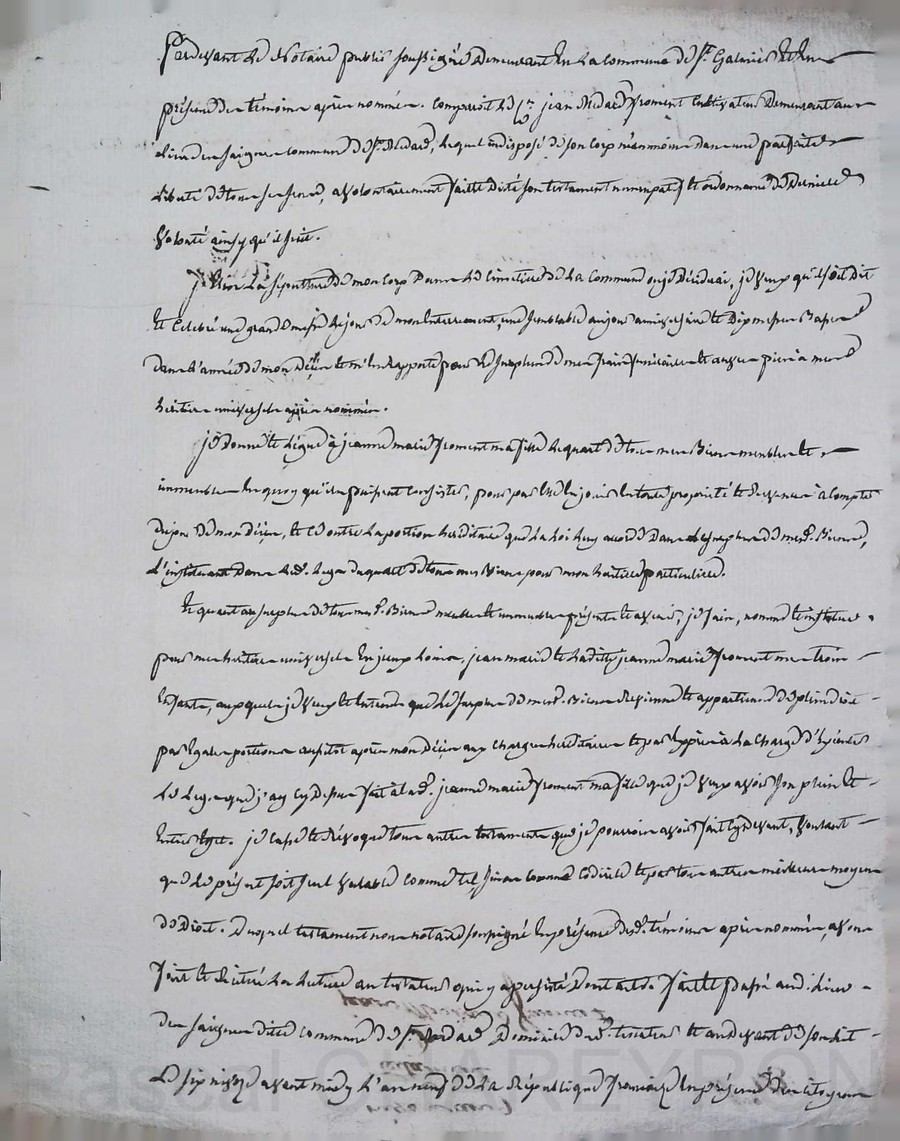 Pardevant le Notaire public soussigné Demeurant en la commune de St. Gabriel et en
présence des témoins après nommés. comparoit le Sr. jean Medard froment Cultivateur Demeurant au
lieu des saignes commune de St. Medard, lequel indisposé de son corp néanmoins dans une parfaite
liberté de tous ses sens, a volontairement fait et dicté son testament nuncupatif et ordonnance de Dernière
Volonté ainsy qu'il suit.
je élis la sépulture de mon corp Dans le Cimetière de la Commune ou je Décédai, je veux qu'il soit dit
et Celebré une grande messe le jour de mon Enterrement, une semblable au jour anniversaire et Dix messes Basses
dans l'année de mon Décès et m'en Rapporte pour le surplus de mes frais funéraires et œuvres pies à mes
héritiers universels après nommés.
je Donne et Légue à jeanne marie froment ma fille le quart de tous mes Biens meubles et
immeubles En quoy qu'ils puissent Consister, pour par Elle En jouir En toute propriété et Revenus à Compter
du jour de mon décès, et ce outre la portion héréditaire que la loi luy accorde Dans le surplus de mesd. Biens,
l'instituant Dans led. Legs du quart de tous mes Biens pour mon héritière particulière.
Et quant au surplus de tous mesd. Biens meubles et immeubles présents et avenir, je fais, nomme et institue
pour mes héritiers universels En jeux jean marie et Ladite jeanne marie froment mes trois
Enfants, auxquels je Veux et Entends que le surplus de mesd. Biens Revienne et appartienne de plein droit
par Egales portions aussitôt après mon Décès aux charges héréditaires et par Exprès à la Charge d'Exécuter
Le Legs que j'ay Cy dessus fait à lad. jeanne marie froment ma fille que je veux avoir son plein et
Entier Effet. je Casse et Révoque tous autres testaments que je pourrois avoir fait Cy devant, Voulant
que le présent soit seul Valable comme tel sinon Comme Codicile et par tous autres meilleurs moyens
de Droit. Duquel testament nous notaire soussigné En présence desd. témoins après nommés, avons
fait et Réitéré La Lecture au testateur qui y a persisté Dont acte. fait et passé audi. Lieu
des saignes dite commune de St. Medard Domicile dud. testateur et au devant de son lit
Le six nivose avant midy L'an neuf de la République française En présence Des citoyens
Pascal CHAREYRON